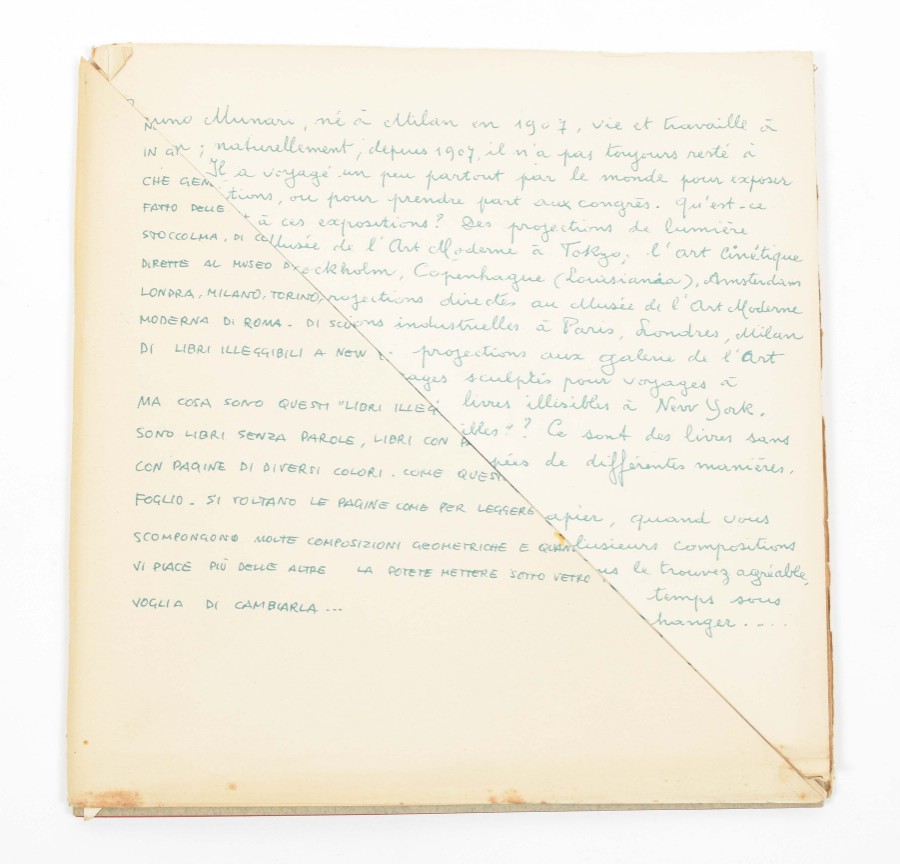 uno Munari, né à Milan en 1907, vie et travaille à
n ; naturellement, depuis 1907, il n'a pas toujours resté à
Il a voyagé un peu partout par le monde pour exposer
itions, ou pour prendre part aux congrès. Qu'est-ce
à ces expositions? Des projections de lumière
Musée de l'Art Moderne à Tokyo; l'art cinétique
ockholm, Copenhague (Louisiana), Amsterdam
rojections directes au Musée de l'Art Moderne
ions industrielles à Paris, Londres, Milan
projections aux galerie de l'Art
ages sculptés pour voyages à
livres illisibles à New York.
ibles"? Ce sont des livres sans
pées de différentes manières.
apier, quand vous
lusieurs compositions
us le trouvez agréable,
temps sous
hanger....
IN GR
CHE GEM
FATTO DELLE
STOCCOLMA, DI CO
DIRETTE AL MUSEO D
LONDRA, MILANO, TORINO,
MODERNA DI ROMA. DI SCU
DI LIBRI ILLEGGIBILI A NEW
MA COSA SONO QUESTI "LIBRI ILLEG
SONO LIBRI SENZA PAROLE, LIBRI CON PA
CON PAGINE DI DIVERSI COLORI. COME QUEST
FOGLIO. SI VOLTANO LE PAGINE COME PER LEGGERE
SCOMPONGONO MOLTE COMPOSIZIONI GEOMETRICHE E QUAND
VI PIACE PIÙ DELLE ALTRE LA POTETE METTERE SOTTO VETRO
VOGLIA DI CAMBIARLA ...